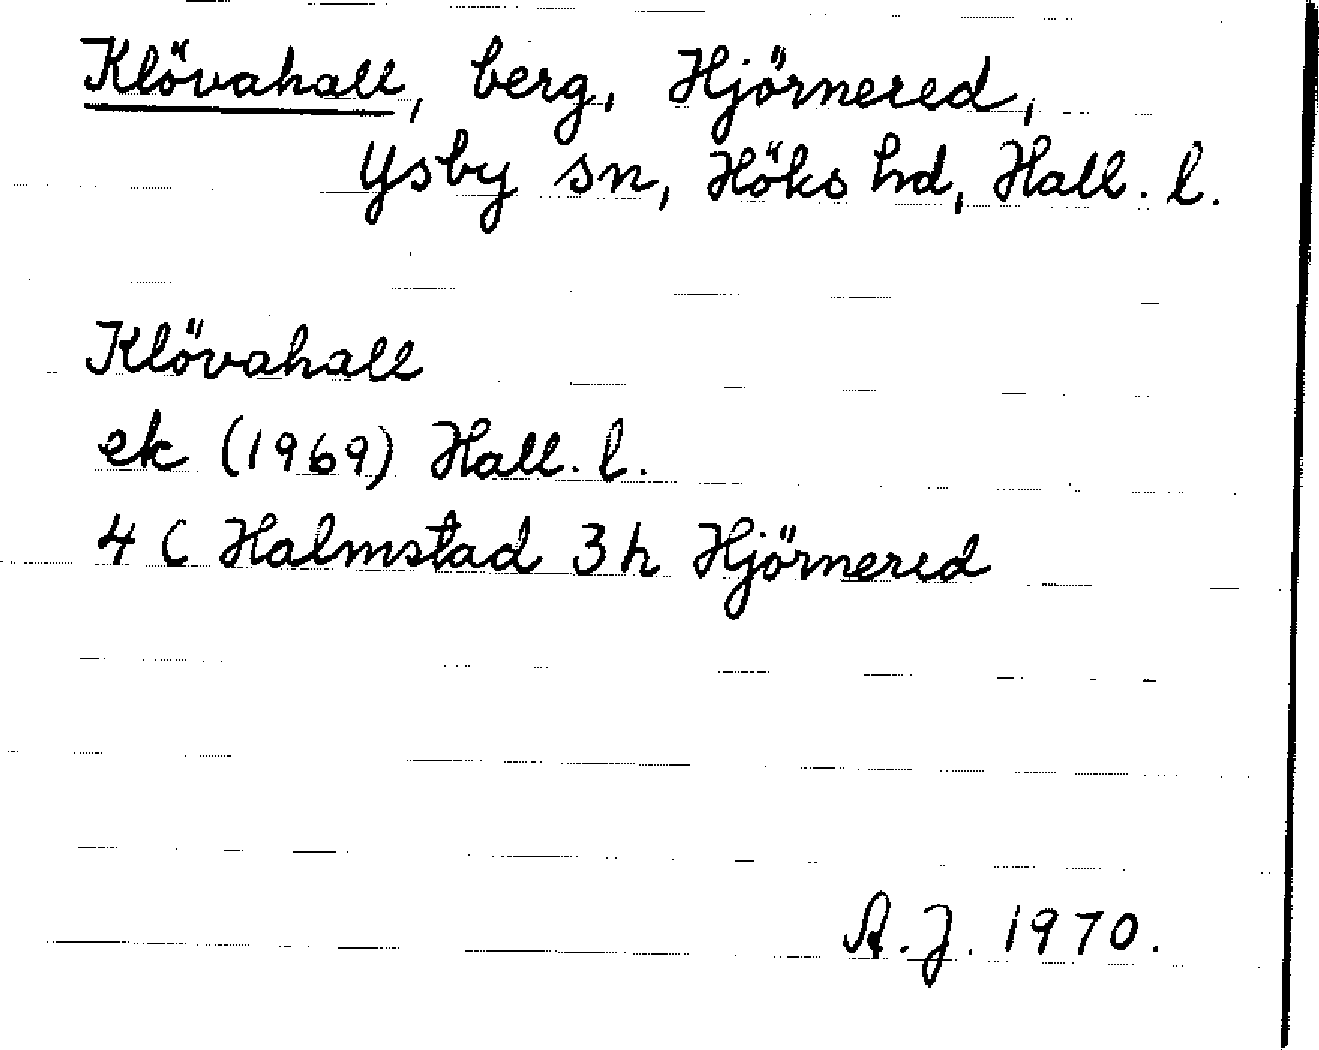 Klövahall, berg, Hjörnered,
Ysby sn, Höks hd, Hall. l.
Klövahall
ek (1969) Hall. l.
4 C Halmstad 3 h Hjörnered
A. J. 1970.